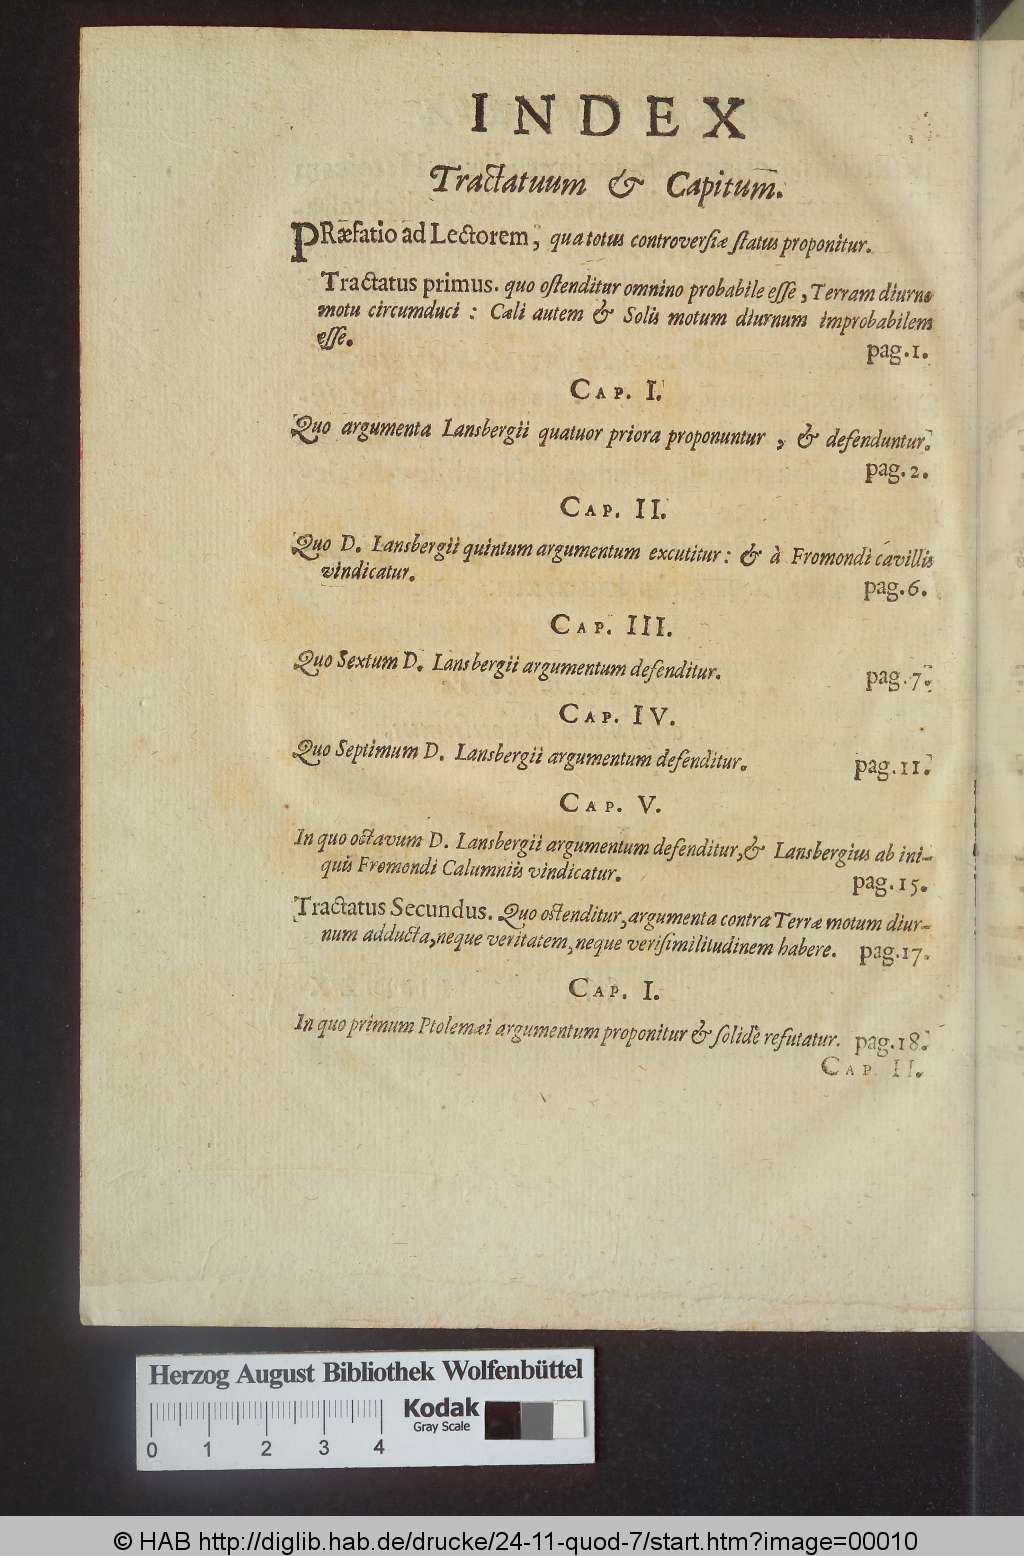 INDEX
Tractatuum & Capitum.
PRæfatio ad Lectorem, qua totus controversiæ status proponitur.
Tractatus primus. quo ostenditur omnino probabile esse, Terram diurno
motu circumduci : Cæli autem & Solis motum diurnum improbabilem
esse.
pag.1.
CAP. I.
Quo argumenta Lansbergii quatuor priora proponuntur, & defenduntur.
pag.2.
CAP. II.
Quo D. Lansbergii quintum argumentum excutitur: & à Fromondi cavillis
vindicatur.
pag.6.
CAP. III.
Quo Sextum D. Lansbergii argumentum defenditur.
pag.7.
CAP. IV.
Quo Septimum D. Lansbergii argumentum defenditur.
pag.11.
CAP. V.
In quo octavum D. Lansbergii argumentum defenditur,& Lansbergius ab ini-
quis Fromondi Calumniis vindicatur.
pag.15.
Tractatus Secundus. Quo ostenditur,argumenta contra Terræ motum diur-
num adducta,neque veritatem,neque verisimilitudinem habere. pag.17.
CAP. I.
In quo primum Ptolemæi argumentum proponitur & solidè refutatur. pag.18.
CAP II.
Herzog August Bibliothek Wolfenbüttel
Kodak
Gray Scale
0 1 2 3 4
© HAB http://diglib.hab.de/drucke/24-11-quod-7/start.htm?image=00010